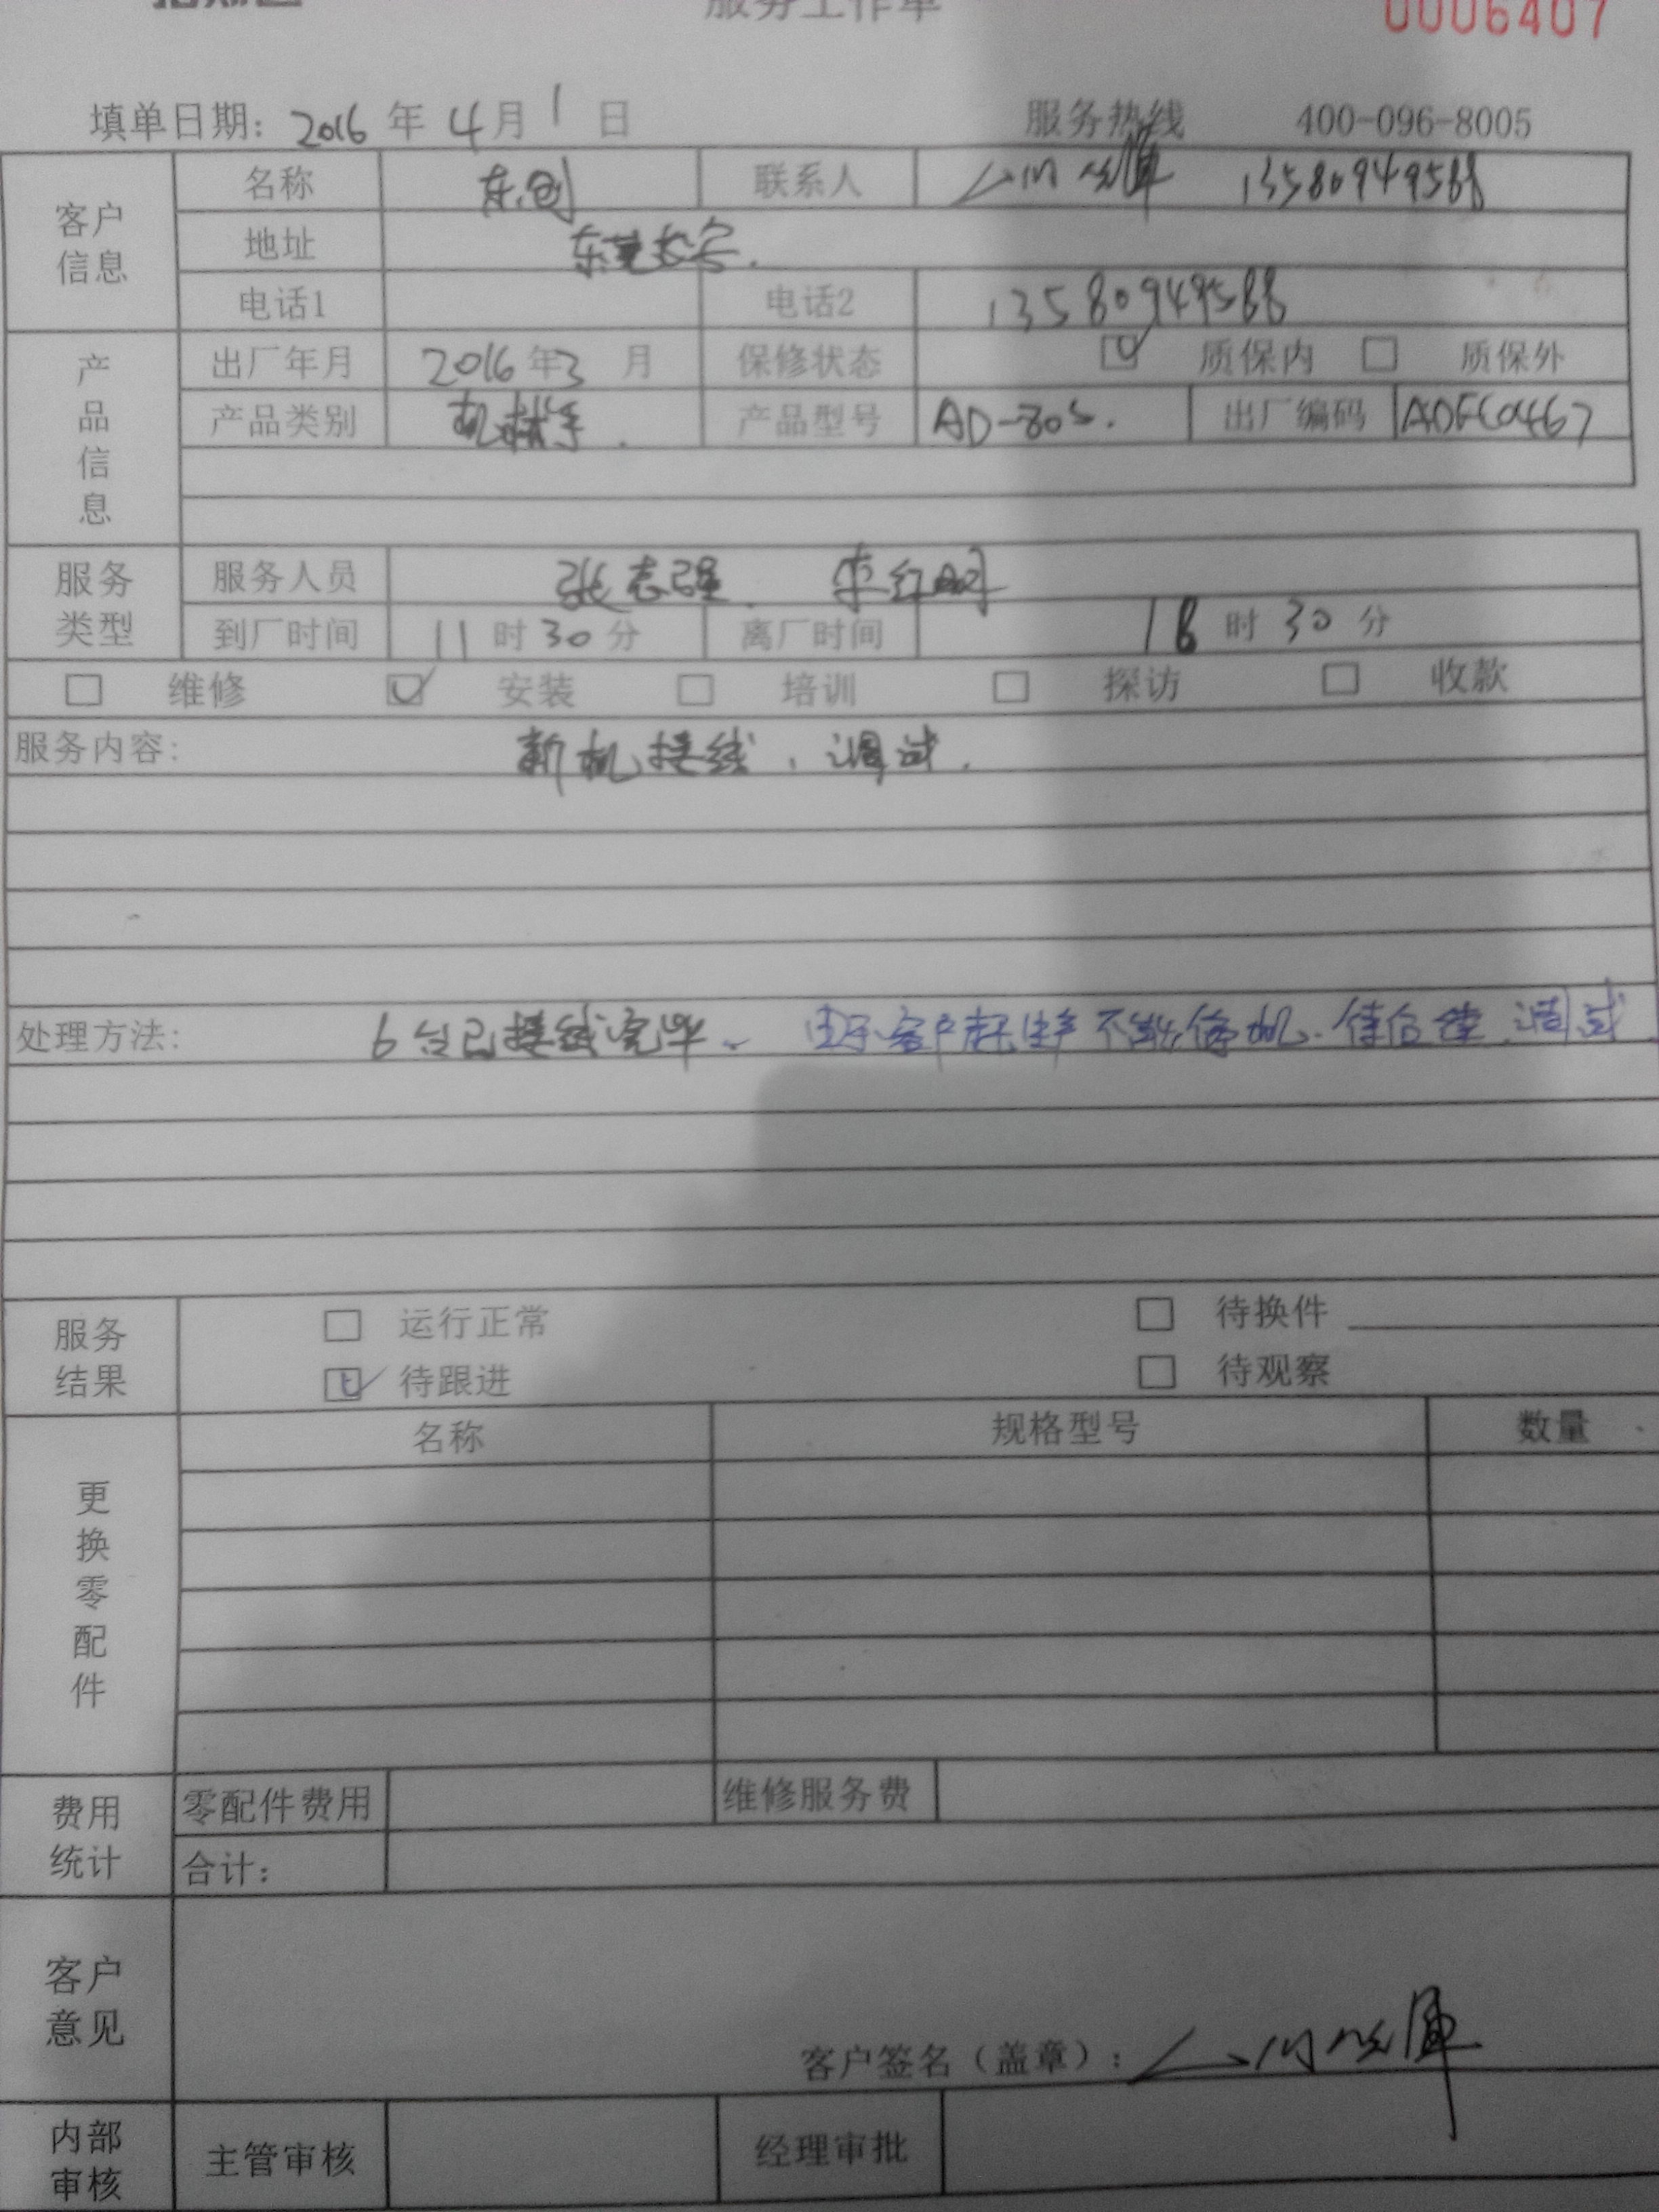 服务工作单 0006407
填单日期：2016年4月1日 服务热线 400-096-8005
客户信息 名称 东创 联系人 13580949588
地址 东莞长安.
电话1 电话2 13580949588
产品信息 出厂年月 2016年3月 保修状态 ☑ 质保内 □ 质保外
产品类别 机械手. 产品型号 AD-80S. 出厂编码
服务类型 服务人员 张志强、
到厂时间 11时30分 离厂时间 18时30分
□ 维修 ☑ 安装 □ 培训 □ 探访 □ 收款
服务内容： 新机接线、调试.
处理方法： 6台已接线完毕、由于客户赶生产不能停机.待后续调试
服务结果 □ 运行正常 □ 待换件
☑ 待跟进 □ 待观察
更换零配件 名称 规格型号 数量
费用统计 零配件费用 维修服务费
合计：
客户意见
客户签名（盖章）：
内部审核 主管审核 经理审批